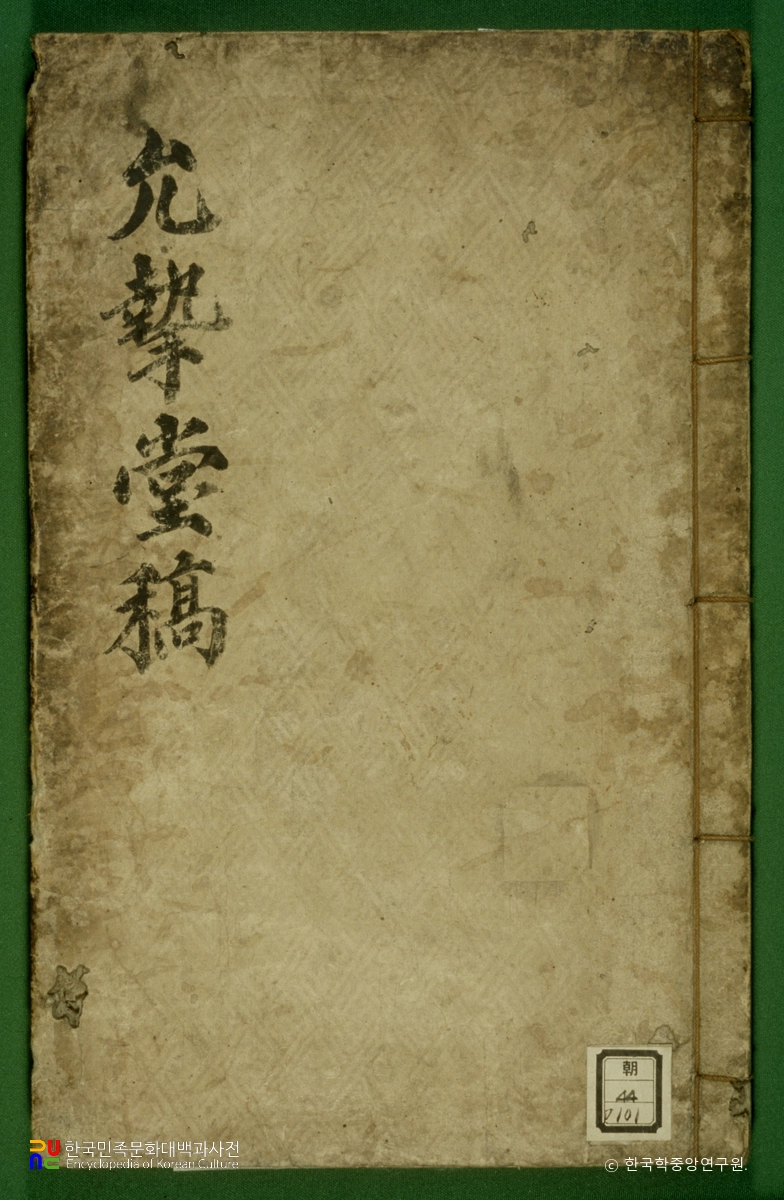 允摯堂稿
朝
44
한국민족문화대백과사전
Encyclopedia of Korean Culture
ⓒ 한국학중앙연구원.